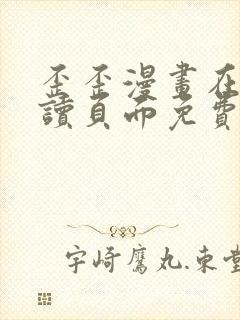 歪歪漫畫在
讀頁面免費
宇崎鷹丸.東堂